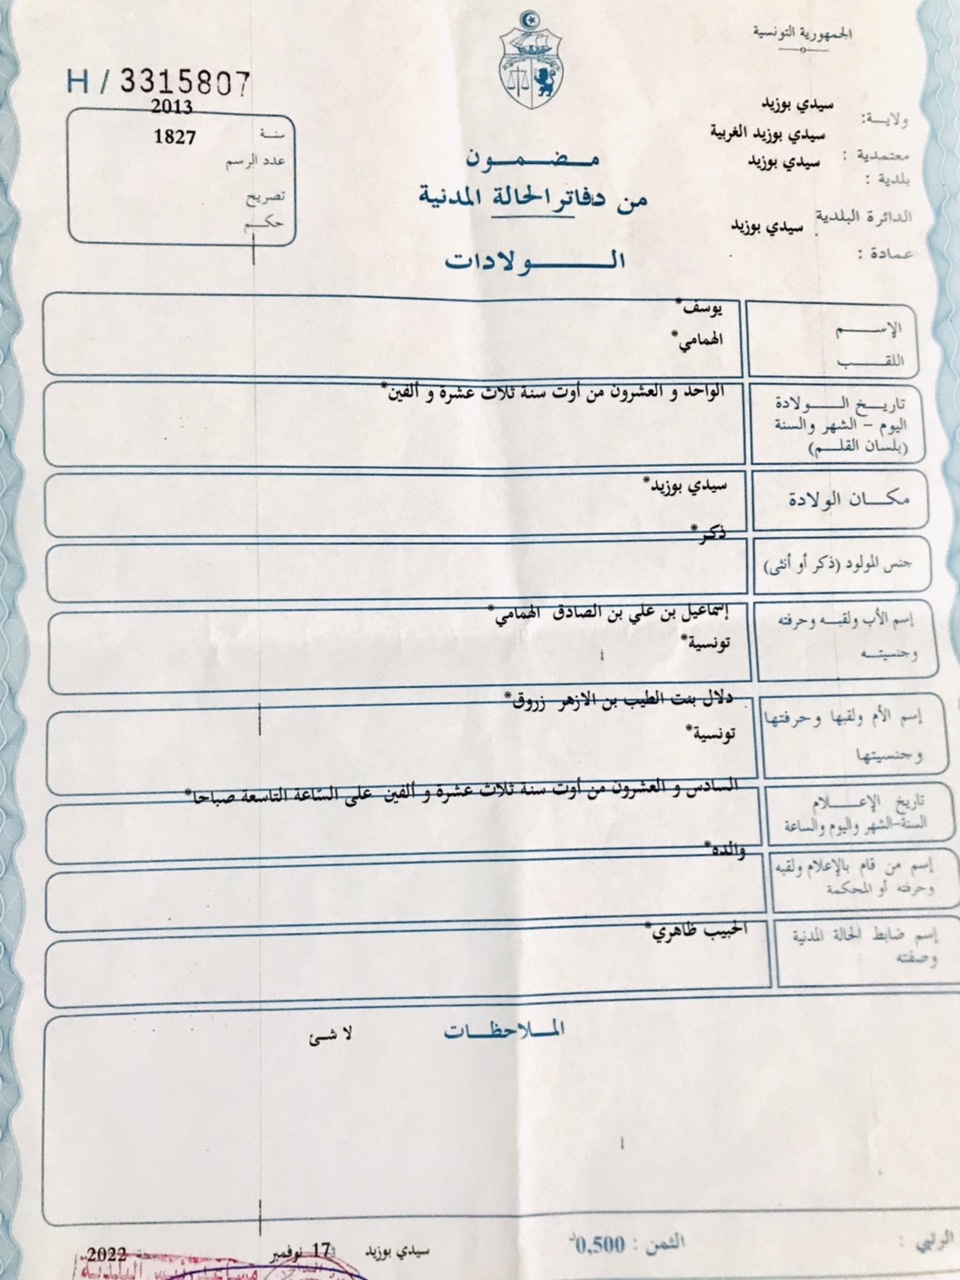 الجمهورية التونسية
H / 3315807
ولاية: سيدي بوزيد
معتمدية : سيدي بوزيد الغربية
بلدية : سيدي بوزيد
الدائرة البلدية سيدي بوزيد
عمادة :
2013
سنة
1827
عدد الرسم
تصريح
حكم
مضمون
من دفاتر الحالة المدنية
الولادات
الإسم يوسف*
اللقب الهمامي*
تاريخ الولادة الواحد و العشرون من أوت سنة ثلاث عشرة و ألفين*
اليوم - الشهر والسنة
(بلسان القلم)
مكان الولادة سيدي بوزيد*
جنس المولود (ذكر أو أنثى) ذكر*
إسم الأب ولقبه وحرفته إسماعيل بن علي بن الصادق الهمامي*
وجنسيته تونسية*
إسم الأم ولقبها وحرفتها دلال بنت الطيب بن الازهر زروق*
وجنسيتها تونسية*
تاريخ الإعلام السادس و العشرون من أوت سنة ثلاث عشرة و ألفين على الساعة التاسعة صباحا*
السنة-الشهر واليوم والساعة
إسم من قام بالإعلام ولقبه والده*
وحرفته أو المحكمة
إسم ضابط الحالة المدنية الحبيب ظاهري*
وصفته
الملاحظات
لا شئ
الثمن : 0,500د
سيدي بوزيد 17 نوفمبر 2022